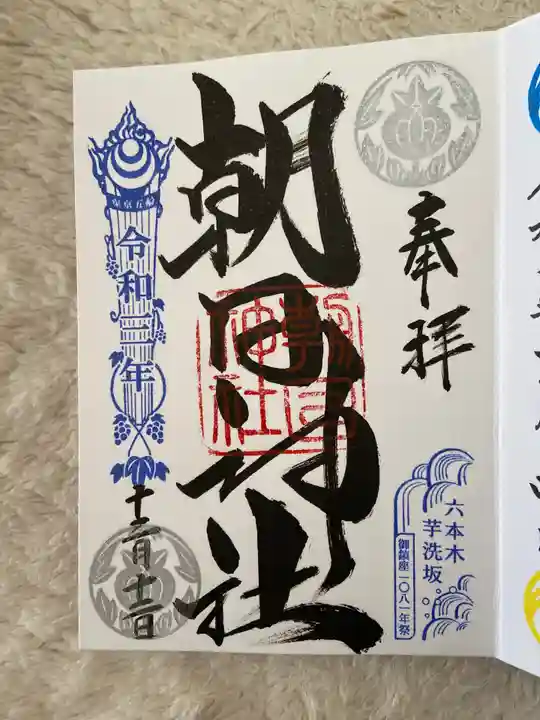 奉拝
六本木
芋洗坂
御鎮座一〇八一年祭
朝日神社
朝日神社
令和三年
十二月十二日